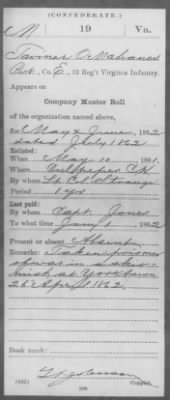 (CONFEDERATE.)
M 19 Va.
Co. E, 19 Reg't Virginia Infantry.
Appears on
Company Muster Roll
of the organization named above,
for May & June, 1862
dated July 1862
Enlisted:
When May 10, 1861.
Where Culpeper C.H.
By whom Lt. Col. Strange
Period 1 yr
Last paid:
By whom Capt. Jones
To what time Jany 1, 1862
Present or absent Absent
Remarks: Taken prisoner
of war in a skir-
mish at Yorktown
26 April 1862.
Book mark:
(642)
Copyist.